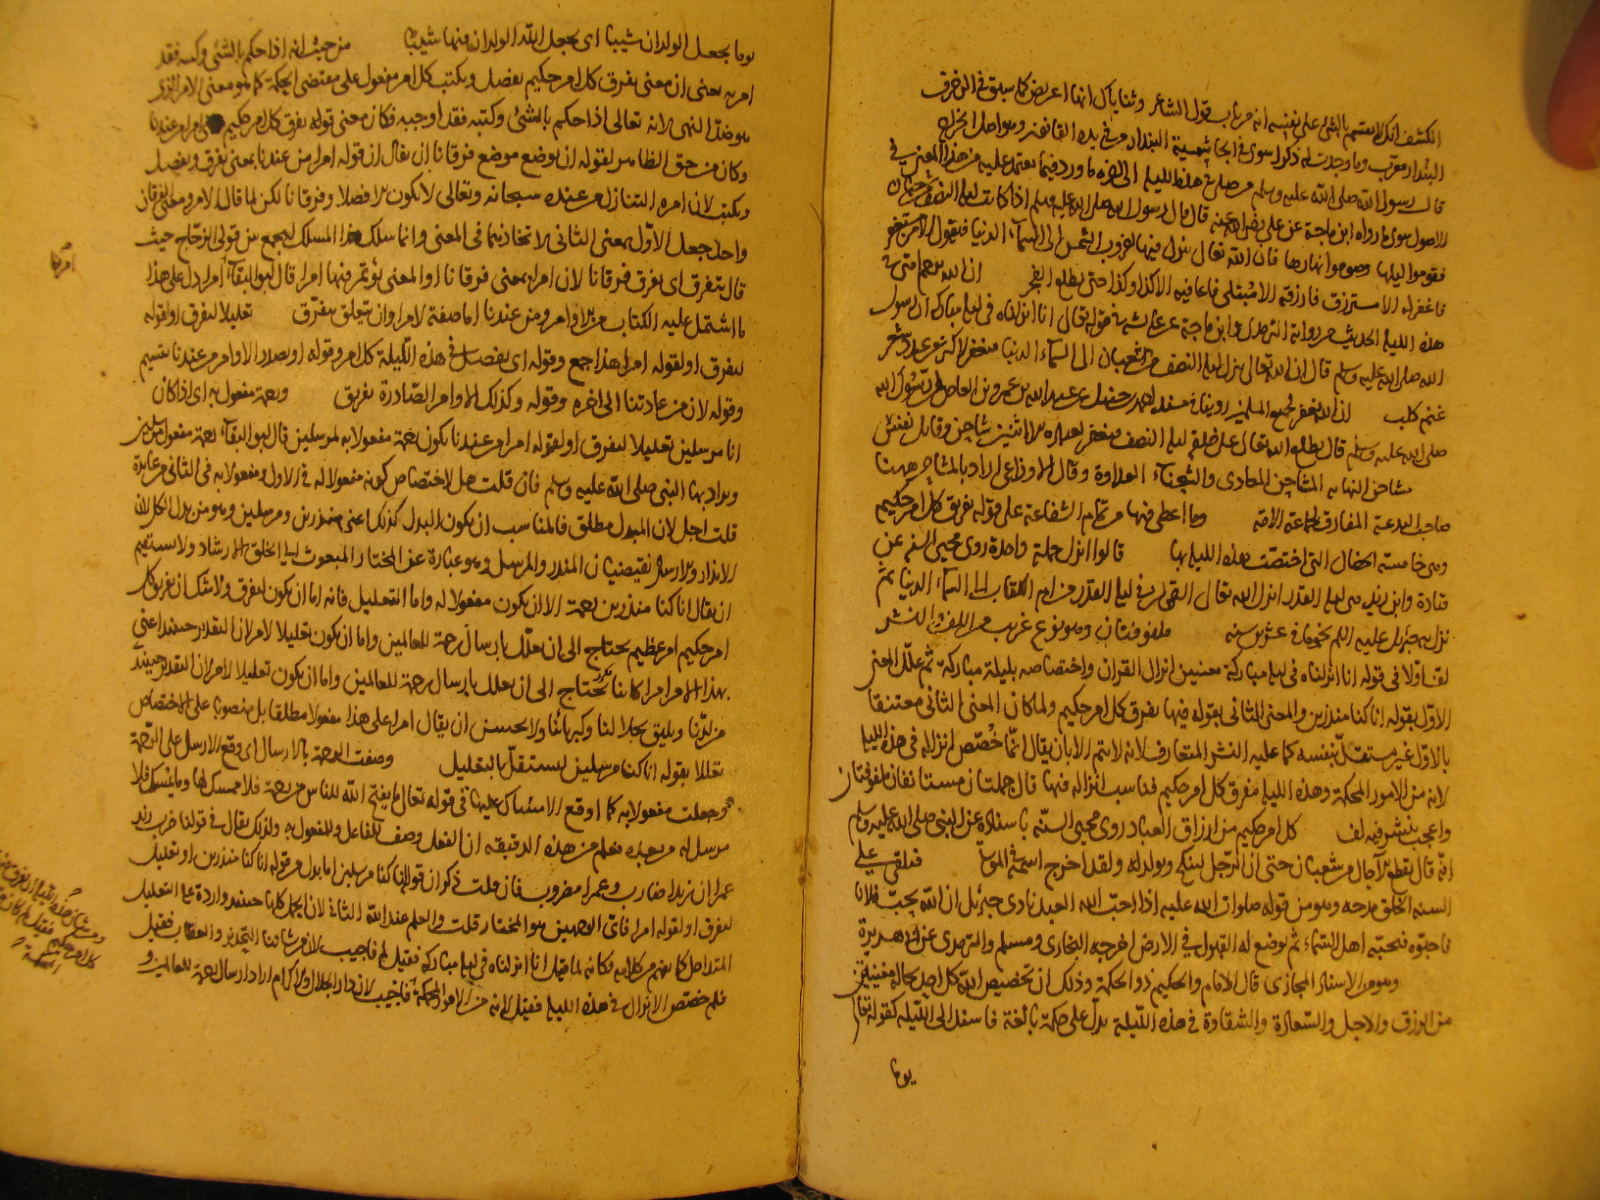 الكشف انك لا تقسم بالشئ على نفسه انه من باب قول الشاعر وثناياك انها اغريض كما سبق في الزخرف
قال رسول الله صلى الله عليه وسلم من صلى في هذه الليلة الى اخره ما ورد فيما يعتمد عليه من هذا المعنى في
الاصول سوى ما رواه ابن ماجة عن علي رضي الله عنه قال قال رسول الله صلى الله عليه وسلم اذا كانت ليلة النصف من شعبان
فقوموا ليلها وصوموا نهارها فان الله تعالى ينزل فيها لغروب الشمس الى السماء الدنيا فيقول الا من مستغفر
فاغفر له الا مسترزق فارزقه الا مبتلى فاعافيه الا كذا وكذا حتى يطلع الفجر ان الله يرحم امتي في
هذه الليلة الحديث من رواية الترمذي وابن ماجة عن عائشة في قوله تعالى انا انزلناه في ليلة مباركة ان رسول
الله صلى الله عليه وسلم قال ان الله تعالى ينزل ليلة النصف من شعبان الى السماء الدنيا فيغفر لاكثر من عدد شعر
غنم كلب ان الله يغفر لجميع المسلمين روينا في مسند احمد بن حنبل عن عبد الله بن عمرو بن العاص ان رسول الله
صلى الله عليه وسلم قال يطلع الله تعالى على خلقه ليلة النصف فيغفر لعباده الا اثنين مشاحن وقاتل نفس
مشاحن النهاية المشاحن المعادي والشحناء العداوة وقال الاوزاعي اراد بالمشاحن ههنا
صاحب البدعة المفارق لجماعة الامة وما اعطى فيها من تمام الشفاعة على قوله يفرق كل امر حكيم
وهي خامسة الخصال التي اختصت هذه الليلة بها قالوا انزل جملة واحدة روى محيي السنة عن
قتادة وابن زيد هي ليلة القدر انزل الله تعالى القران في ليلة القدر من ام الكتاب الى السماء الدنيا ثم
نزل به جبريل عليه السلم نجوما في عشرين سنة ملفوفتان وهو نوع غريب من اللف والنشر
لف اولا في قوله انا انزلناه في ليلة مباركة معنيين انزال القران واختصاصه بليلة مباركة ثم علل المعنى
الاول بقوله انا كنا منذرين والمعنى الثاني بقوله فيها يفرق كل امر حكيم ولما كان المعنى الثاني معتنقا
بالاول غير مستقل بنفسه كما عليه النشر المتعارف لانه لا يتم الا بان يقال انما خصص انزاله في هذه الليلة
لانه من الامور المحكمة وهذه الليلة مفرق كل امر حكيم فناسب انزاله فيها قال جملتان مستانفتان ملفوفتان
كل امر حكيم من ارزاق العباد روى محيي السنة باسناده عن النبي صلى الله عليه وسلم
انه قال تقطع الاجال من شعبان حتى ان الرجل لينكح ويولد له ولقد اخرج اسمه في الموتى فتلقى على
السنة الخلق مدحه وهو من قوله صلوات الله عليه اذا احب الله العبد نادى جبرئل ان الله يحب فلانا
فاحبوه فيحبه اهل السماء ثم يوضع له القبول في الارض اخرجه البخاري ومسلم والترمذي عن ابي هريرة
وهو من الاسناد المجازي قال الامام والحكيم ذو الحكمة وذلك ان تخصيص الله كل احد بحالة معينة
من الرزق والاجل والسعادة والشقاوة في هذه الليلة يدل على حكمة بالغة فاسند الى الليلة كقوله تعالى
يوما
يوما يجعل الولدان شيبا اي يجعل الله الولدان فيها شيبا من حيث انه اذا حكم بالشئ وكتبه فقد
امر به يعني ان معنى يفرق كل امر حكيم يفصل ويكتب كل امر مفعول على مقتضى الحكمة كما هو معنى الامر الذي
هو ضد النهي لانه تعالى اذا حكم بالشئ وكتبه فقد اوجبه فكان معنى قوله يفرق كل امر حكيم امرا من عندنا
وكان من حق الظاهر لقوله ان يوضع موضع فرقانا ان يقال ان قوله امرا من عندنا بمعنى يفرق ويفصل
ويكتب لان امره المتنازل من عنده سبحانه وتعالى لا يكون الا فصلا وفرقانا لكن لما قال الامر ومعنى الفرقان
واحد جعل الاول بمعنى الثاني لاتحادهما في المعنى وانما سلك هذا المسلك ليجمع بين قولي الزجاج حيث
قال يفرق اي يفرق فرقانا لان امرا بمعنى فرقانا او المعنى يؤتمر فيها امرا قال ابو البقاء امرا دل على هذا
ما اشتمل عليه الكتاب من الاوامر ومن عندنا اما صفة لامرا وان يتعلق بيفرق تعليلا ليفرق او لقوله
ليفرق او لقوله امرا هذا جمع وقوله اي يفصل في هذه الليلة كل امر وقوله او تصدر الاوامر من عندنا تقسيم
وقوله لان من عادتنا الى اخره وقوله وكذلك الاوامر الصادرة تفريق ورحمة مفعول به اي اذا كان
انا مرسلين تعليلا ليفرق او لقوله امرا من عندنا يكون رحمة مفعولا به لمرسلين قال ابو البقاء رحمة مفعول مرسلين
ويراد بها النبي صلى الله عليه وسلم فان قلت هل لاختصاص كونه مفعولا له في الاول ومفعولا به في الثاني من فائدة
قلت اجل لان المبدل مطلق فالمناسب ان يكون البدل كذلك اعني منذرين ومرسلين وهو من بدل الكل لان
الانذار والارسال يقتضيان المنذر والمرسل وهو عبارة عن المختار المبعوث الى الخلق للارشاد ولا يستقيم
ان يقال انا كنا منذرين رحمة الا ان يكون مفعولا له واما التعليل فانه اما ان يكون ليفرق ولا شك ان تفريق كل
امر حكيم امر عظيم يحتاج الى ان يعلل بارسال رحمة للعالمين واما ان يكون تعليلا لامرا لان التقدير حينئذ اعني
بهذا الامر امرا كائنا يحتاج الى ان يعلل بارسال رحمة للعالمين واما ان يكون تعليلا لامرا لان التقدير حينئذ
من لدنا ويليق بجلالنا وكبريائنا والاحسن ان يقال امرا على هذا مفعولا مطلقا بل منصوبا على الاختصاص
تعليلا بقوله انا كنا مرسلين ليستقل بالتعليل وصفت الرحمة بالارسال اي وقع الارسال على الرحمة
وجعلت مفعولا به كما اوقع الامساك عليها في قوله تعالى ما يفتح الله للناس من رحمة فلا ممسك لها وما يمسك فلا
مرسل له من بعده فعلم من هذه الدقيقة ان الفعل وصف للفاعل والمفعول به ولذلك يقال في قولنا ضرب زيد
عمرا ان زيدا ضارب وعمرا مضروب فان قلت ذكر ان قوله انا كنا مرسلين اما بدل من قوله انا كنا منذرين او تعليل
ليفرق او لقوله امرا فاي الوجهين هو المختار قلت والعلم عند الله الثاني لان الجمل كلها حينئذ واردة على التعليل
المتداخل كما يفهم من كلامه فكانه لما قيل انا انزلناه في ليلة مباركة فقيل لم فاجيب لان من شاننا التحذير والعقاب فقيل
فلم خصص الانزال في هذه الليلة فقيل لانه من الامور المحكمة فاجيب لان ذا الجلال والاكرام اراد ارسال رحمة للعالمين و
كل امر حكيم فقيل